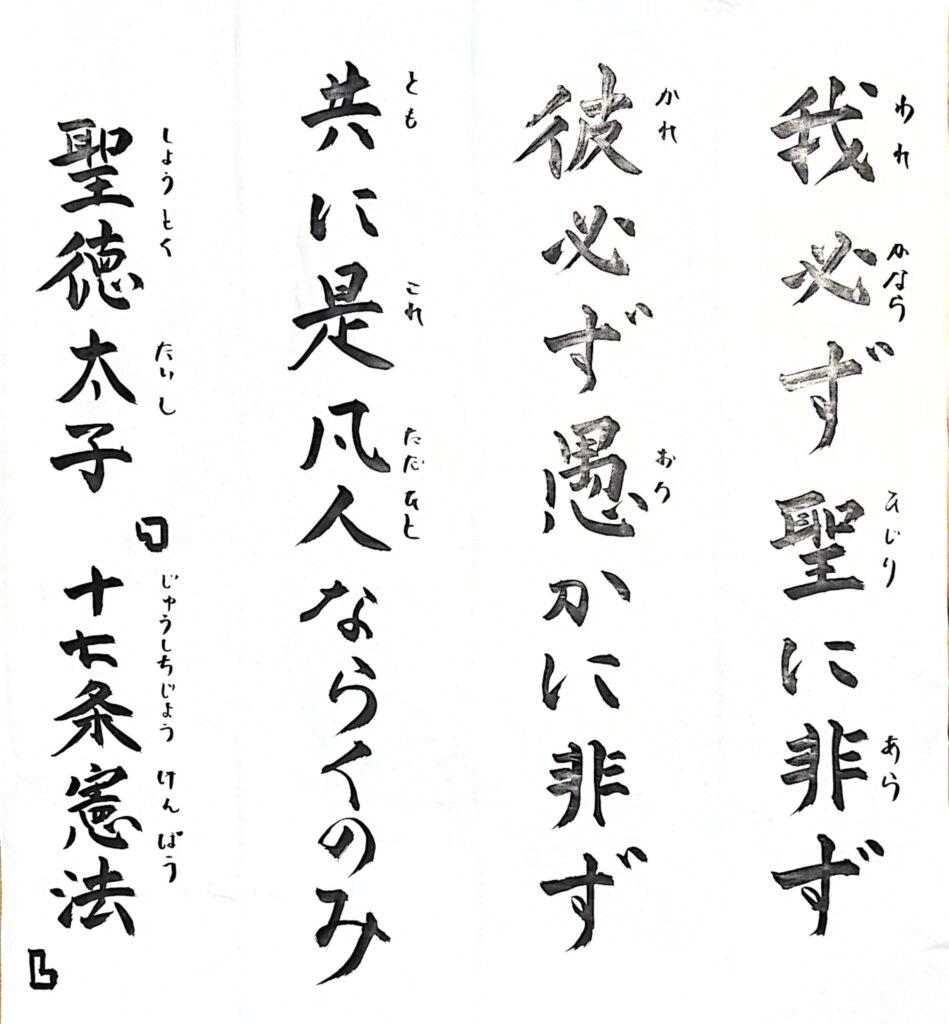 我必ず聖に非ず
われ かなら ひじり あら
彼必ず愚かに非ず
かれ おろ
共に是凡人ならくのみ
とも これ ただひと
聖徳太子『十七条憲法』
しょうとく たいし じゅうしちじょう けんぽう